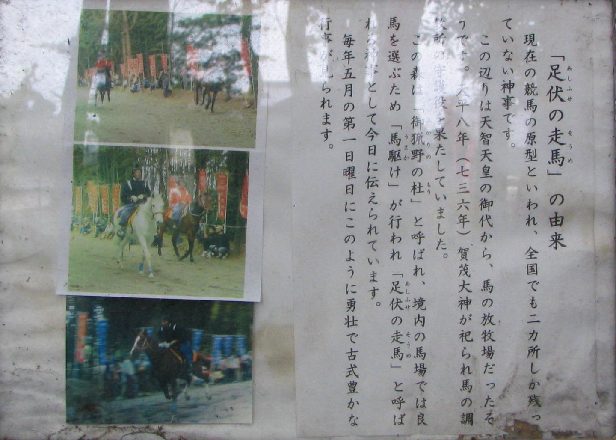 「足伏の走馬」の由来
現在の競馬の原型といわれ、全国でも二カ所しか残っ
ていない神事です。
この辺りは天智天皇の御代から、馬の放牧場だったそ
うです。天平八年（七三六年）賀茂大神が祀られ馬の調
役を果たしていました。
この森は「御猟野の杜」と呼ばれ、境内の馬場では良
馬を選ぶため「馬駆け」が行われ「足伏の走馬」と呼ば
れ として今日に伝えられています。
毎年五月の第一日曜日にこのように勇壮で古式豊かな
行事が られます。